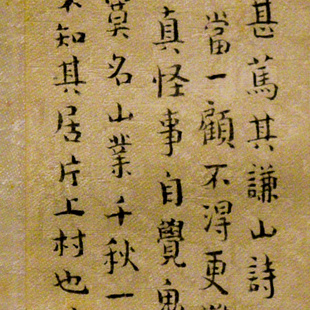 甚篤其謙山詩
當一顧不得更
真怪事自覺鬼
莫名山業千秋一
知其居片上村也